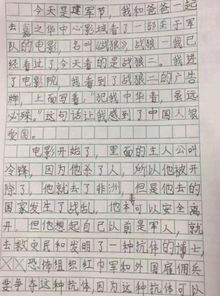 今天是建军节，我和爸爸一起
去之华中心影城看了一部关于军
队的电影，名叫《战狼》战狼一我已
经看过了今天看的是战狼二。我进
了电影院，我看到了战狼二的广告
牌，上面写着："犯我中华者，虽远
必殊。"这句话让我感到了中国人很
爱国。
电影开始了，里面的主人公叫
冷锋，因为他杀了人，所以他被开
除了，他就去了非洲，但是他去的
国家发生了战乱，他本可以安全离
开，但他想起自己以前是军人，就
去救灾民和发明了一种抗体的博士
恐怖组织红巾军和外国雇佣兵
要争夺这种抗体因为这种抗体可以